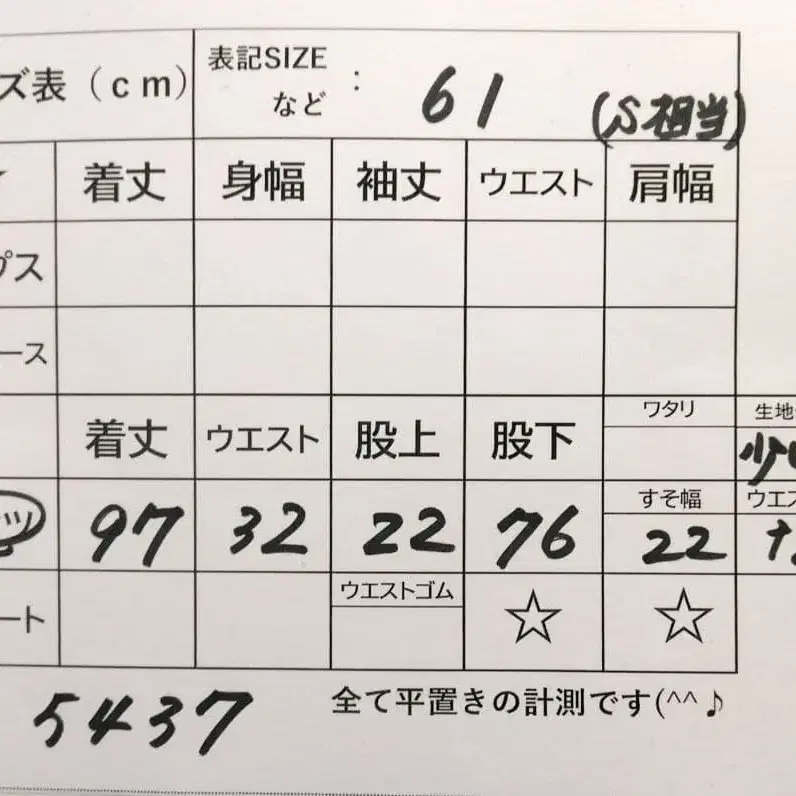 ズ表（cm） 表記SIZE など : 61 (S相当)
着丈 身幅 袖丈 ウエスト 肩幅
プス
ース
着丈 ウエスト 股上 股下 ワタリ 生地
97 32 22 76 すそ幅 22 ウエス
ート ウエストゴム ☆ ☆
5437 全て平置きの計測です(^^♪